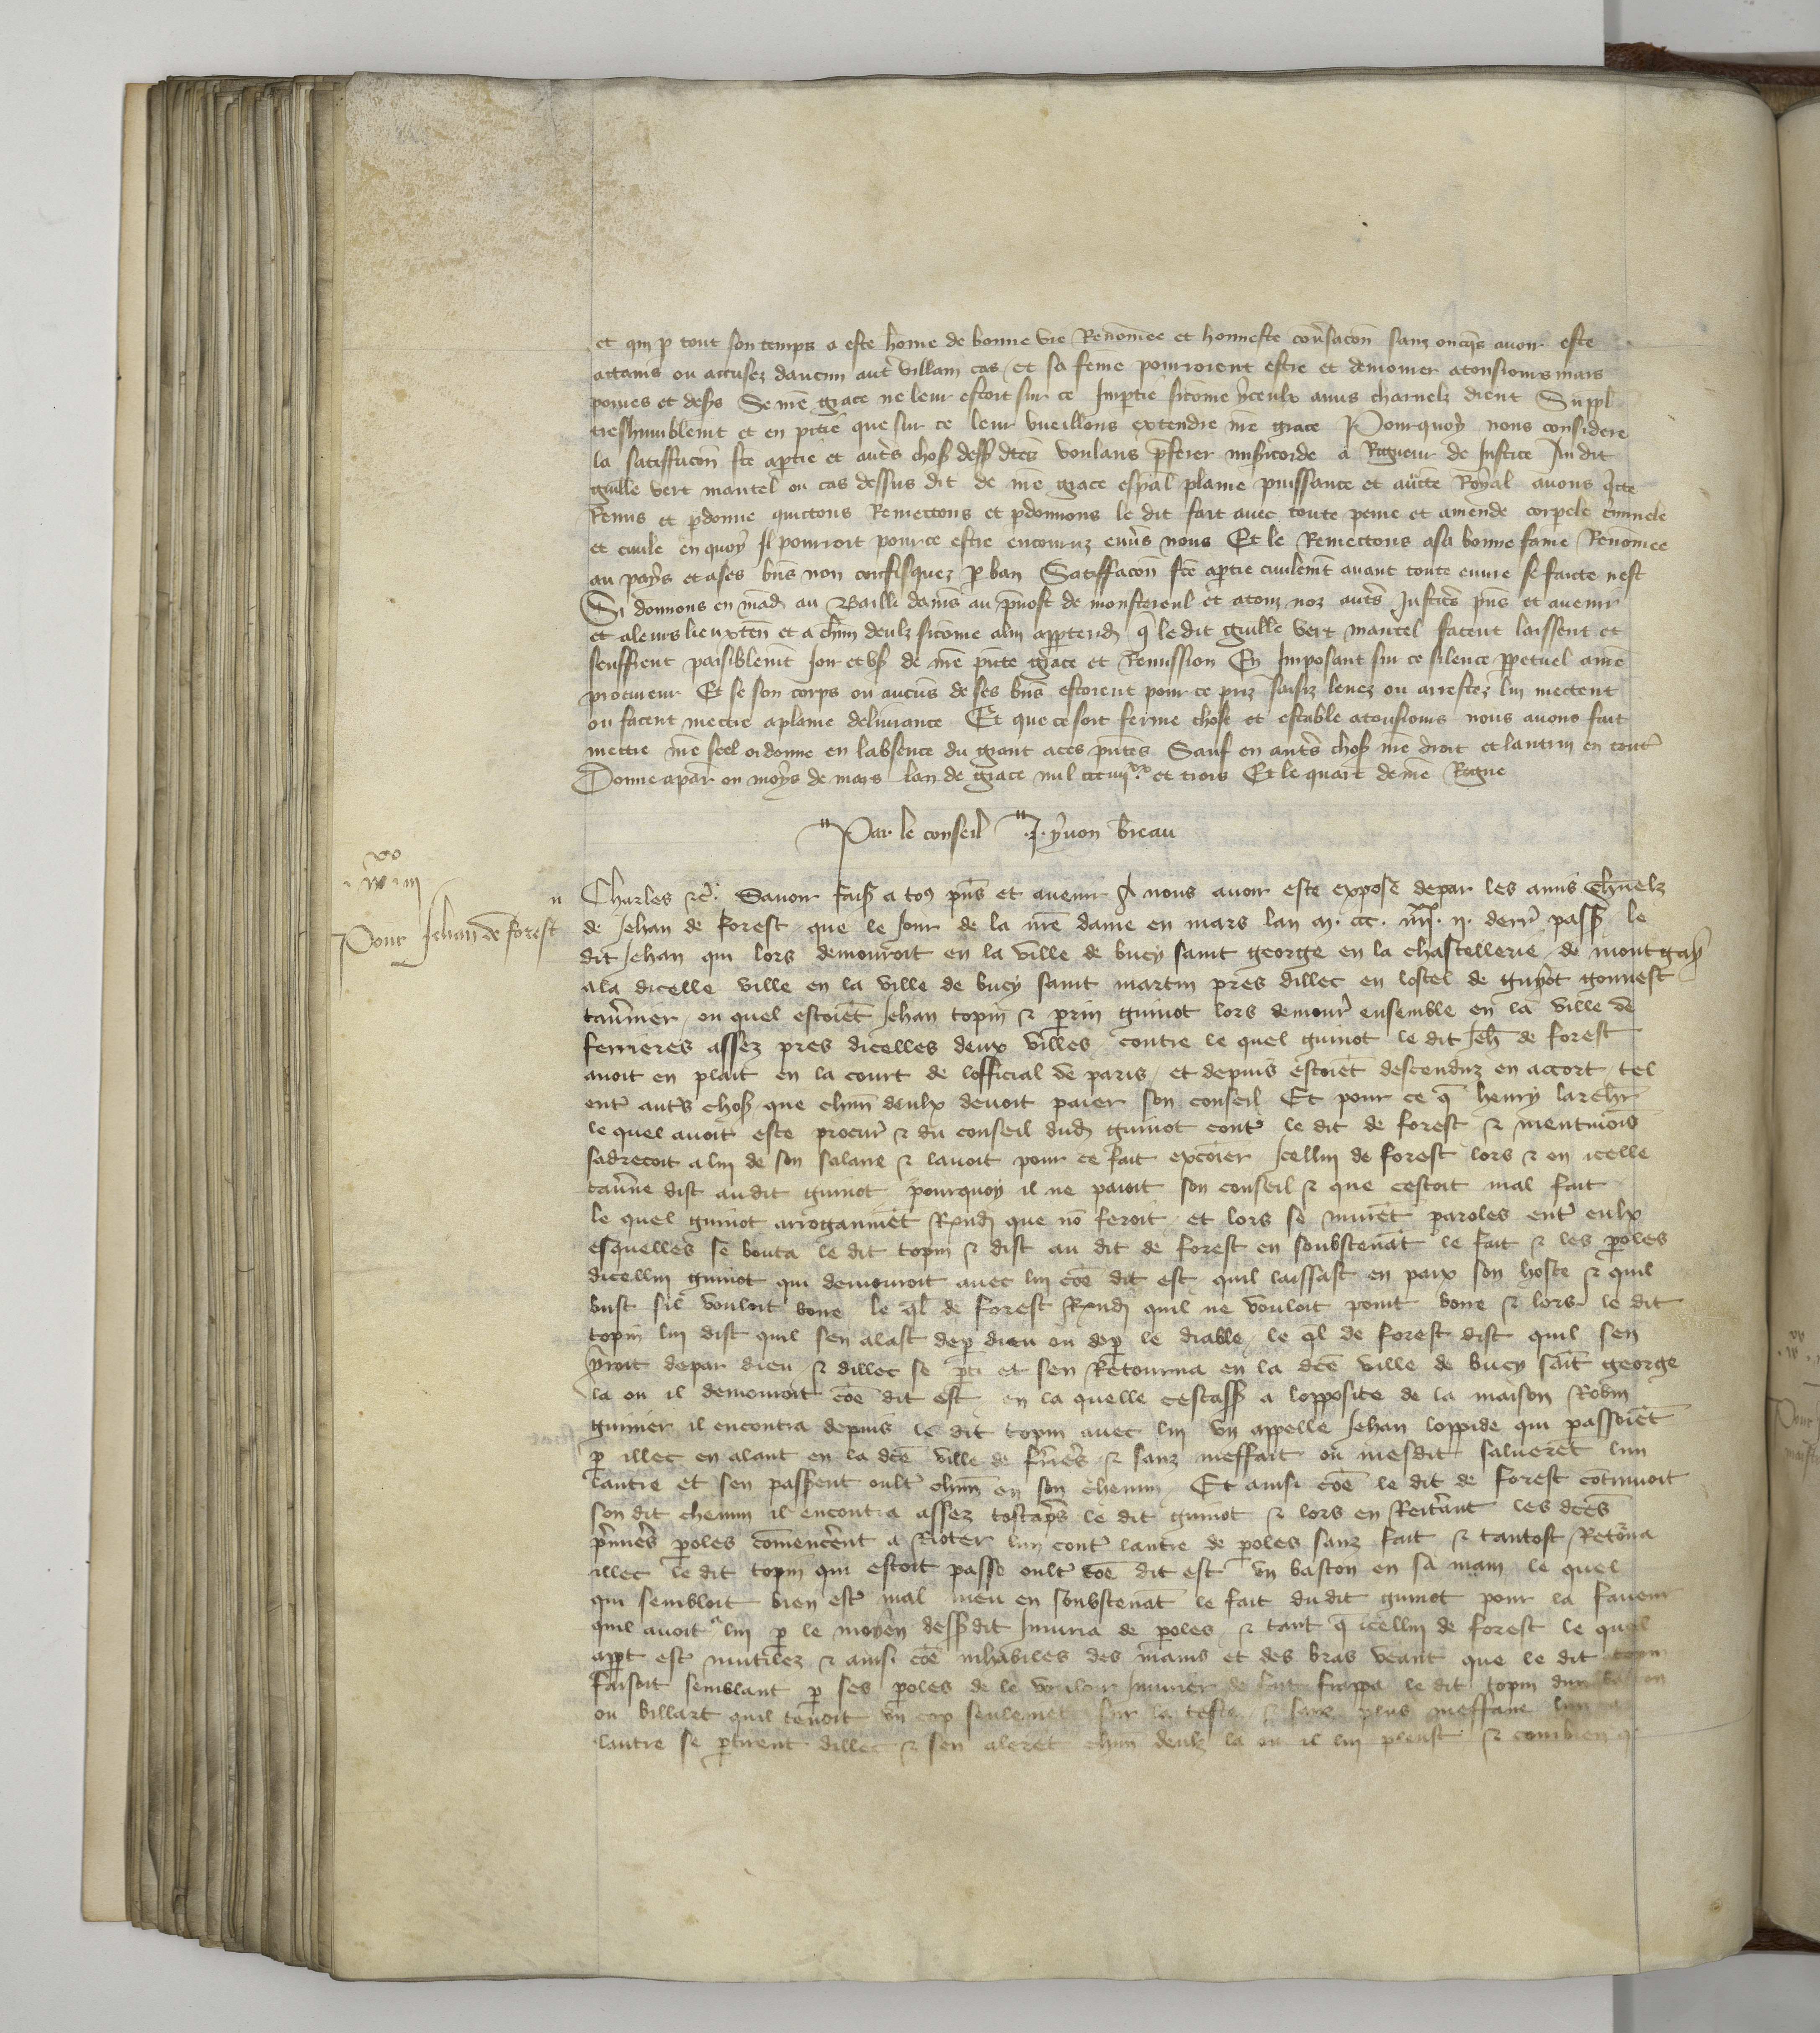 et qui p tout son temps a este home de bonne vie Renomee et honneste conv̄sacōn sanz oncq̄s avoir este
attains ou accusez daucun autr̄ villain cas / et sa feme pourroient estre et demourer atousiours mais
povres et desers Se nr̄e grace ne leur estoit sur ce Impartie sicōme yceulx amis charnelz dient Suppl
treshumblemt et en pitie que sur ce leur vueillons extendre nr̄e grace Pourquoy nous considere
la satisfacōn fcē aptie et autr̄s chos̄ dess dctēs voulans p̄ferer misericorde a Rigueur de Justice Au dit
guille vert mantel ou cas dessus dit de nr̄e grace esp̄al plaine puissance et auctē Royal avons q̄tte
Remis et pdonne quictons Remectons et pdonnons le dit fait avec toute peine et amende corpele cr̄minele
et civile en quoy Il pourroit pource estre encouruz env̄s nous Et le Remectons asa bonne fame Renomee
au pays et ases biēs non confisquez p ban Satisfacōn fcē aptie civilemt avant toute euvre se faicte nest
Si donnons en mād au Bailli damiēs au p̄vost de monstereul et atouz noz autr̄s Justicrs p̄ns et avenir
et aleurs lieuxten̄ et a chūn deulz sicōme alui apptend q̄ le dit guille vert mantel facent laissent et
seuffrent paisiblemt Joir et us̄ de nr̄e p̄nte grace et Remission En Imposant sur ce silence ppetuel anr̄e
procureur Et se son corps ou aucūs de ses biēs estoient pour ce priz saisiz levez ou arrestez lui mectent
ou facent mectre aplaine delivrance Et que ce soit ferme chose et estable atousiours nous avons fait
mectre nr̄e seel ordonne en labsence du grant aces p̄ntes Sauf en autr̄s chos̄ nr̄e droit et lautrui en toutr̄
Donne apar̄ ou moys de mars lan de grace mil ccc iiijxx et trois Et le quart de nr̄e Regne
Par le conseil J. yvon Breau
Pour Jehan de forest
Charles &c̄. Savoir fais̄ a to9 p̄ns et avenir A nous avoir este expose depar les amis chn̄elz
de Jehan de forest que le Jour de la nr̄e dame en mars lan m. ccc. iiijxx. ij. derr̄ pass̄ le
dit Jehan qui lors demouroit en la ville de bucy saint george en la chastellerie de montgay
ala dicelle ville en la ville de bucy saint martin pres dillec en lostel de guyot gonnest
tav̄nier / ou quel estoiēt Jehan topin & perrin guinot lors demourr̄ ensemble en la ville de
ferrieres assez pres dicelles deux villes contre le quel guinot le dit Jeh̄ de forest
avoit en plait en la court de lofficial de paris / et depuis estoiēt descenduz en accort / tel
entr̄ autr̄s chos̄ que chūn deulx devoit paier son conseil Et pour ce q̄ henry larchr̄
le quel avoit este procur̄ & du conseil dud guinot contr̄ le dit de forest & neantmoīs
sadrecoit a lui de son salaire & lavoit pour ce fait excōier Icellui de forest lors & en icelle
tav̄ne dist audit guinot pourquoy il ne paioit son conseil & que cestoit mal fait
le quel guinot arrogammēt Respond que nō feroit / et lors se murēt paroles entr̄ eulx
esquelles se bouta le dit topin & dist au dit de forest en soubstenāt le fait & les poles
dicellui guinot qui demouroit avec lui cōe dit est quil laissast en paix son hoste & quil
bust sil vouloit boire le ql̄ de forest Respond quil ne vouloit point boire & lors le dit
topin lui dist quil sen alast dep dieu ou dep le diable / le ql̄ de forest dist quil sen
yroit depar dieu & dillec se pti et sen Retourna en la dcē ville de bucy saīt george
la ou il demouroit cōe dit est en la quelle cestass̄ a lopposite de la maison Robin
guinier il encontra depuis le dit topin avec lui un appelle Jehan loppide qui passoiēt
p illec en alant en la dcē ville de fr̄ierēs & sanz meffait ou mesdit saluerēt lun
lautre et sen passerent oultr̄ chūn en son chemin Et ainsi cōe le dit de forest cōtinuoit
son dit chemin il encontra assez tostap̄s le dit guinot & lors en Reitr̄ant les dcēs
pr̄mier̄s poles cōmencerēt a Rioter lun contr̄ lautre de poles sanz fait & tantost Retōna
illec le dit topin qui estoit passe oultr̄ cōe dit est un baston en sa main le quel
qui sembloit bien estr̄ mal meu en soubstenāt le fait dudit guinot pour la faveur
quil avoit a lui p le moyen dessdit Iniuria de poles & tant q̄ icellui de forest le quel
appt estr̄ mutilez & ainsi cōe inhabiles des mains et des bras veant que le dit topin
faisoit semblant p ses poles de le vouloir iniurier frappa le dit topin dun baston
ou billart quil tenoit un cop seulemēt sur la teste & sanz plus meffaire lun
lautre se ptirent dillec & sen alerēt chūn deulz la ou il lui pleust & combien q̄